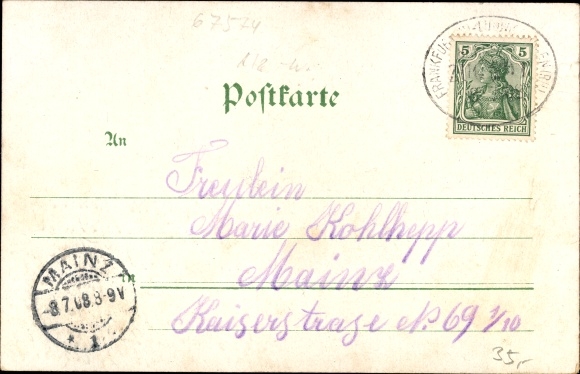 67574
5 5
DEUTSCHES REICH
Postkarte
An
Freulein
Marie Kohlhepp
Mainz
Kaiserstrase No 69 1/10
MAINZ
-8.7.08.8-9V
* 1
35,-